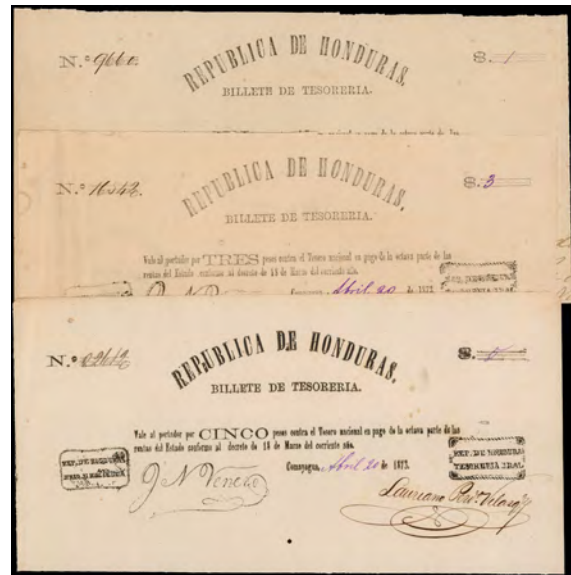 N.º 9660. REPUBLICA DE HONDURAS. $. 1
BILLETE DE TESORERIA.
N.º REPUBLICA DE HONDURAS. $. 3
BILLETE DE TESORERIA.
Vale al portador por TRES pesos contra el Tesoro nacional en pago de la octava parte de las
rentas del Estado conforme al decreto de 18 de Marzo del corriente año.
Comayagua, Abril 20 de 1873.
N.º REPUBLICA DE HONDURAS. $. 5
BILLETE DE TESORERIA.
Vale al portador por CINCO pesos contra el Tesoro nacional en pago de la octava parte de las
rentas del Estado conforme al decreto de 18 de Marzo del corriente año.
Comayagua, Abril 20 de 1873.
REP. DE HONDURAS
TESORERIA JRAL.